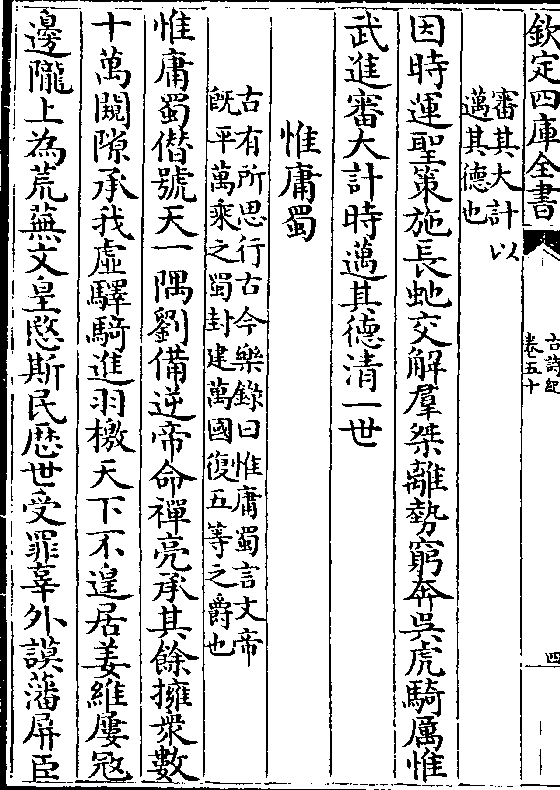 欽定四庫全書
古詩紀
卷五十
四
審其大計以
邁其德也
因時運聖策施長虵交解羣桀離勢窮奔吳虎騎厲惟
武進審大計時邁其德清一世
惟庸蜀
古有所思行古今樂錄曰惟庸蜀言文帝
旣平萬乘之蜀封建萬國復五等之爵也
惟庸蜀僣號天一隅劉備逆帝命禪亮承其餘擁衆數
十萬闚隙承我虛驛騎進羽檄天下不遑居姜維屢冦
邊隴上為荒蕪文皇愍斯民歴世受罪辜外謨藩屏臣